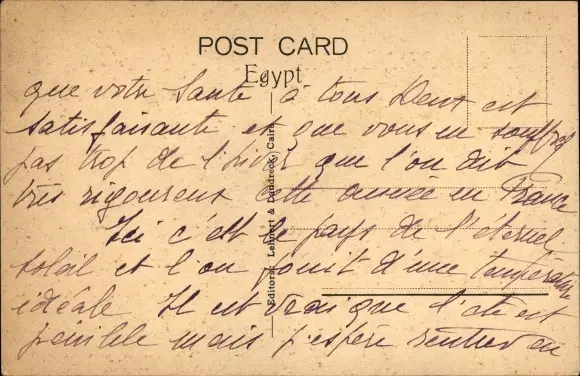 POST CARD
Egypt
Editors: Lehnert & Landrock, Cairo
que votre Santé à tous Deux est
satisfaisante et que vous en souffrez
pas trop de l'hiver que l'on dit
très rigoureux cette année en France
Ici c'est le pays de l'éternel
soleil et l'on jouit d'une température
idéale Il est vrai que l'été est
pénible mais j'espère rentrer en